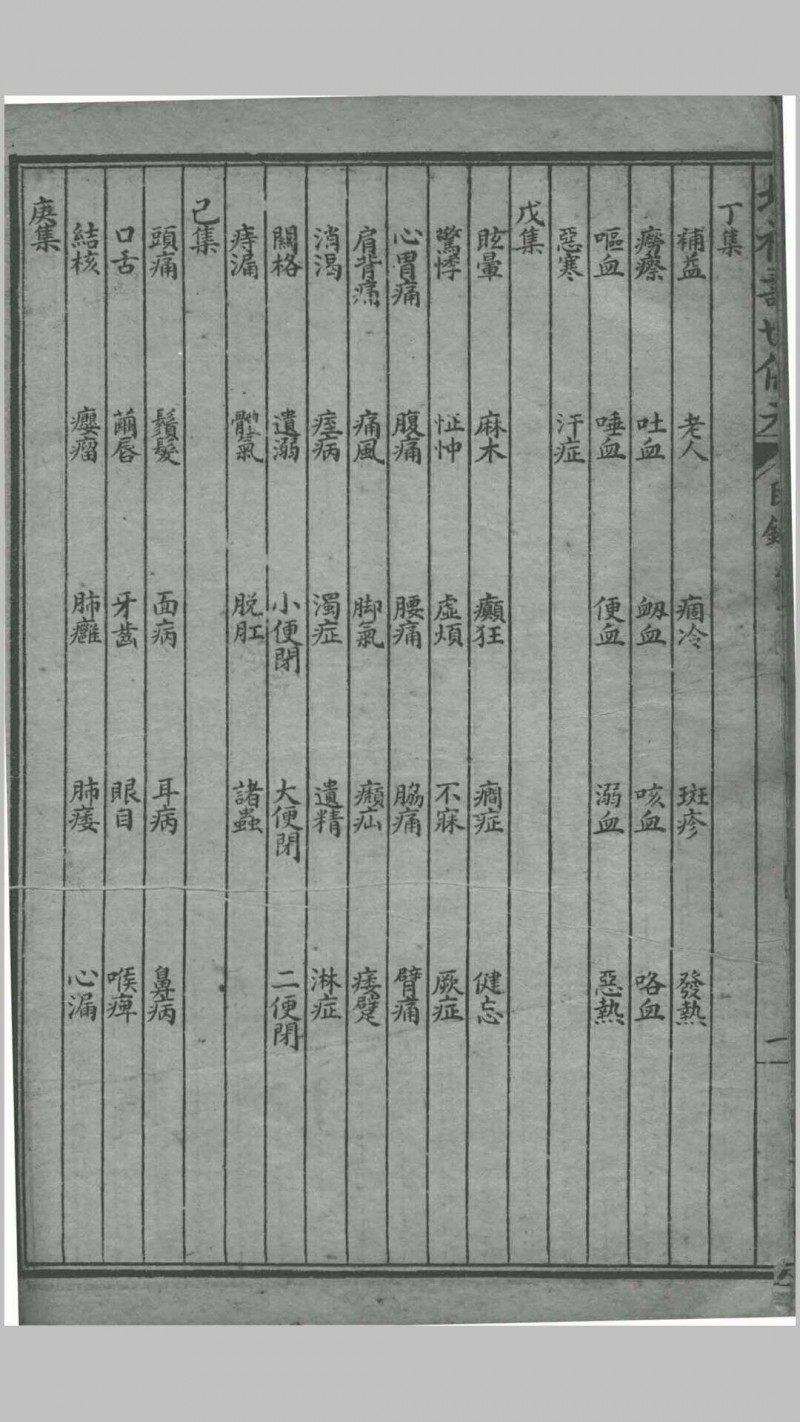 增補壽世保元 目錄 二
丁集
補益 老人 痼冷 斑疹 發熱
癆瘵 吐血 衂血 咳血 咯血
嘔血 唾血 便血 溺血 惡熱
惡寒 汗症
戊集
眩暈 麻木 癲狂 癇症 健忘
驚悸 怔忡 虛煩 不寐 厥症
心胃痛 腹痛 腰痛 脇痛 臂痛
肩背痛 痛風 脚氣 㿗疝 痿躄
消渴 痓病 濁症 遺精 淋症
關格 遺溺 小便閉 大便閉 二便閉
痔漏 體氣 脱肛 諸蟲
己集
頭痛 鬚髮 面病 耳病 鼻病
口舌 繭唇 牙齒 眼目 喉痺
結核 癭瘤 肺癰 肺痿 心漏
庚集